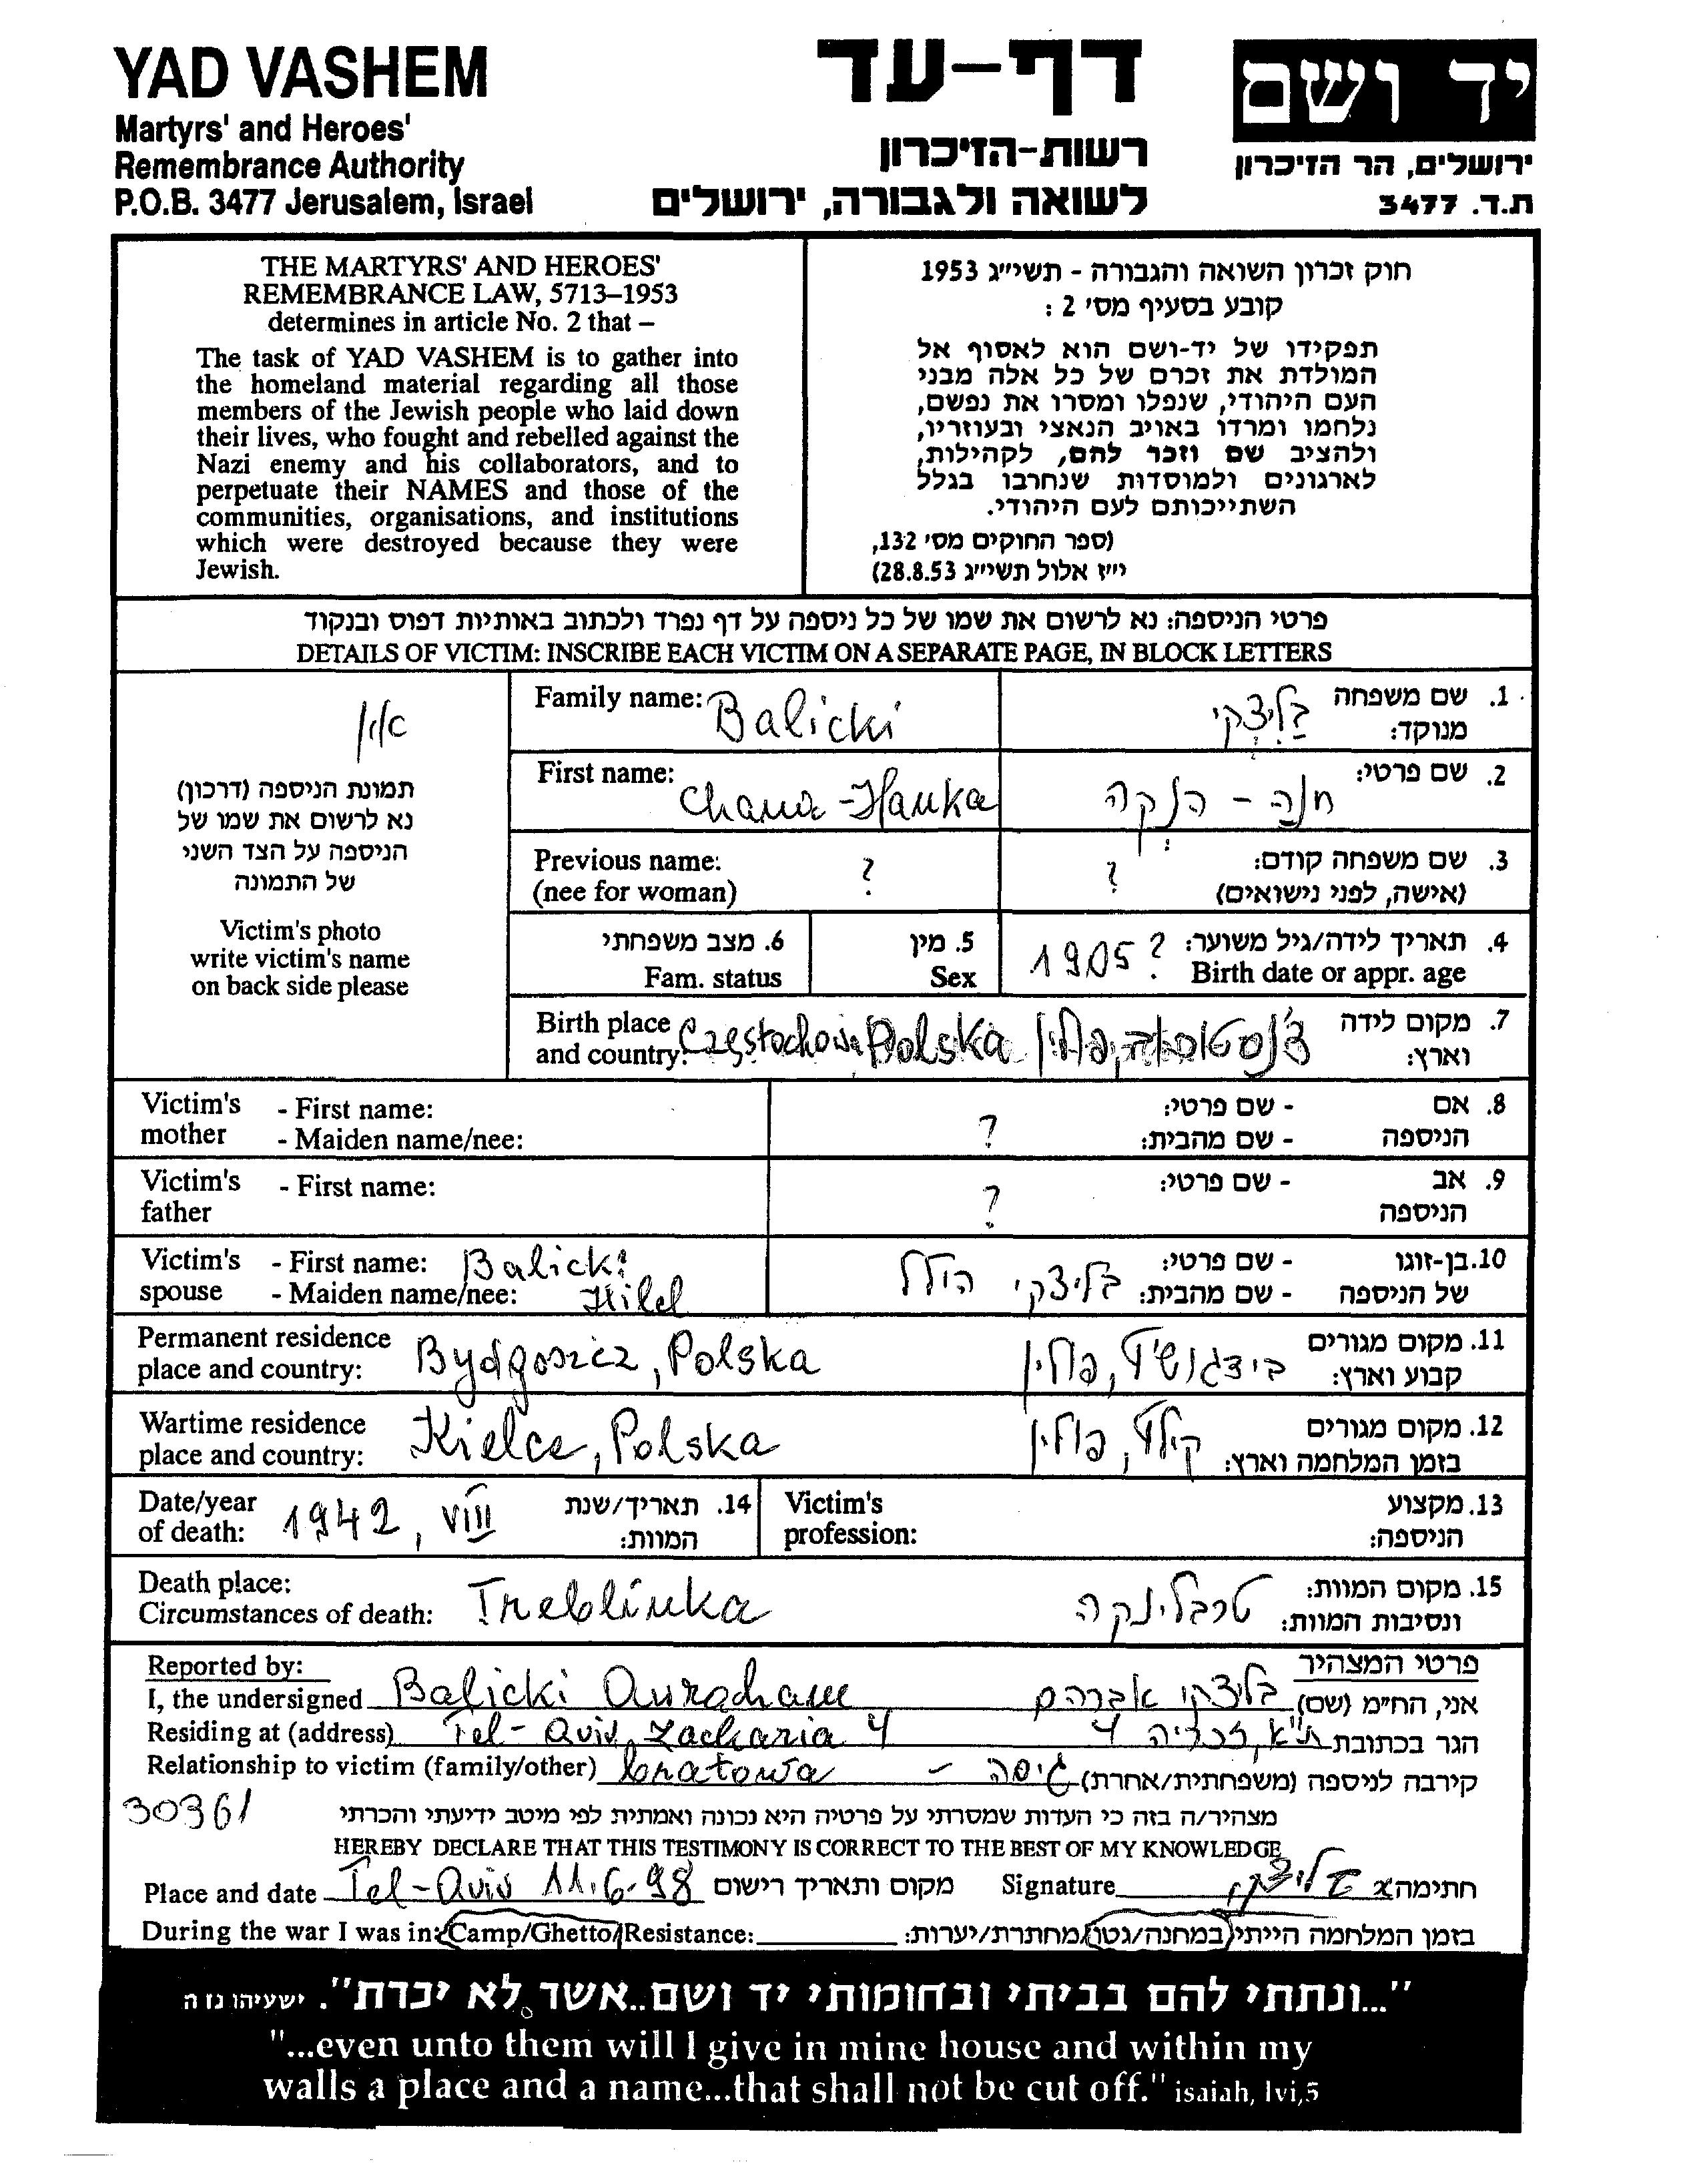 YAD VASHEM
Martyrs' and Heroes'
Remembrance Authority
P.O.B. 3477 Jerusalem, Israel
דף-עד
רשות-הזיכרון
לשואה ולגבורה, ירושלים
יד ושם
ירושלים, הר הזיכרון
ת.ד. 3477
THE MARTYRS' AND HEROES'
REMEMBRANCE LAW, 5713–1953
determines in article No. 2 that –
The task of YAD VASHEM is to gather into
the homeland material regarding all those
members of the Jewish people who laid down
their lives, who fought and rebelled against the
Nazi enemy and his collaborators, and to
perpetuate their NAMES and those of the
communities, organisations, and institutions
which were destroyed because they were
Jewish.
חוק זכרון השואה והגבורה - תשי״ג 1953
קובע בסעיף מס׳ 2 :
תפקידו של יד-ושם הוא לאסוף אל
המולדת את זכרם של כל אלה מבני
העם היהודי, שנפלו ומסרו את נפשם,
נלחמו ומרדו באויב הנאצי ובעוזריו,
ולהציב שם וזכר להם, לקהילות,
לארגונים ולמוסדות שנחרבו בגלל
השתייכותם לעם היהודי.
(ספר החוקים מס׳ 132,
י״ז אלול תשי״ג 28.8.53)
פרטי הניספה: נא לרשום את שמו של כל ניספה על דף נפרד ולכתוב באותיות דפוס ובנקוד
DETAILS OF VICTIM: INSCRIBE EACH VICTIM ON A SEPARATE PAGE, IN BLOCK LETTERS
תמונת הניספה (דרכון)
נא לרשום את שמו של
הניספה על הצד השני
של התמונה
Victim's photo
write victim's name
on back side please
Family name: Balicki בליצקי 1. שם משפחה
מנוקד:
First name: Chana-Hanka חנה - הנקה 2. שם פרטי:
Previous name: ? ? 3. שם משפחה קודם:
(nee for woman) (אישה, לפני נישואים)
6. מצב משפחתי 5. מין 1905 ? 4. תאריך לידה/גיל משוער:
Fam. status Sex Birth date or appr. age
Birth place Częstochowa Polska פולין 7. מקום לידה
and country: וארץ:
Victim's - First name: - שם פרטי: 8. אם
mother - Maiden name/nee: ? - שם מהבית: הניספה
Victim's - First name: - שם פרטי: 9. אב
father ? הניספה
Victim's - First name: Balicki בליצקי הילל - שם פרטי: 10. בן-זוגו
spouse - Maiden name/nee: Hilel - שם מהבית: של הניספה
Permanent residence Bydgoszcz, Polska פולין 11. מקום מגורים
place and country: קבוע וארץ:
Wartime residence Kielce, Polska קילץ, פולין 12. מקום מגורים
place and country: בזמן המלחמה וארץ:
Date/year 1942, VIII 14. תאריך/שנת Victim's 13. מקצוע
of death: המוות: profession: הניספה:
Death place: Treblinka טרבלינקה 15. מקום המוות:
Circumstances of death: ונסיבות המוות:
Reported by: פרטי המצהיר
I, the undersigned Balicki Avracham בליצקי אברהם אני, הח״מ (שם)
Residing at (address) Tel-Aviv, Zacharia 4 ת״א, זכריה 4 הגר בכתובת
Relationship to victim (family/other) bratowa - גיסה קירבה לניספה (משפחתית/אחרת)
30361 מצהיר/ה בזה כי העדות שמסרתי על פרטיה היא נכונה ואמתית לפי מיטב ידיעתי והכרתי
HEREBY DECLARE THAT THIS TESTIMONY IS CORRECT TO THE BEST OF MY KNOWLEDGE
Place and date Tel-Aviv 11.6.98 מקום ותאריך רישום Signature בליצקי חתימה
During the war I was in: Camp/Ghetto/Resistance: בזמן המלחמה הייתי במחנה/גטו/מחתרת/יערות:
"...ונתתי להם בביתי ובחומותי יד ושם..אשר לא יכרת". ישעיהו נז ה
"...even unto them will I give in mine house and within my
walls a place and a name...that shall not be cut off." isaiah, lvi,5